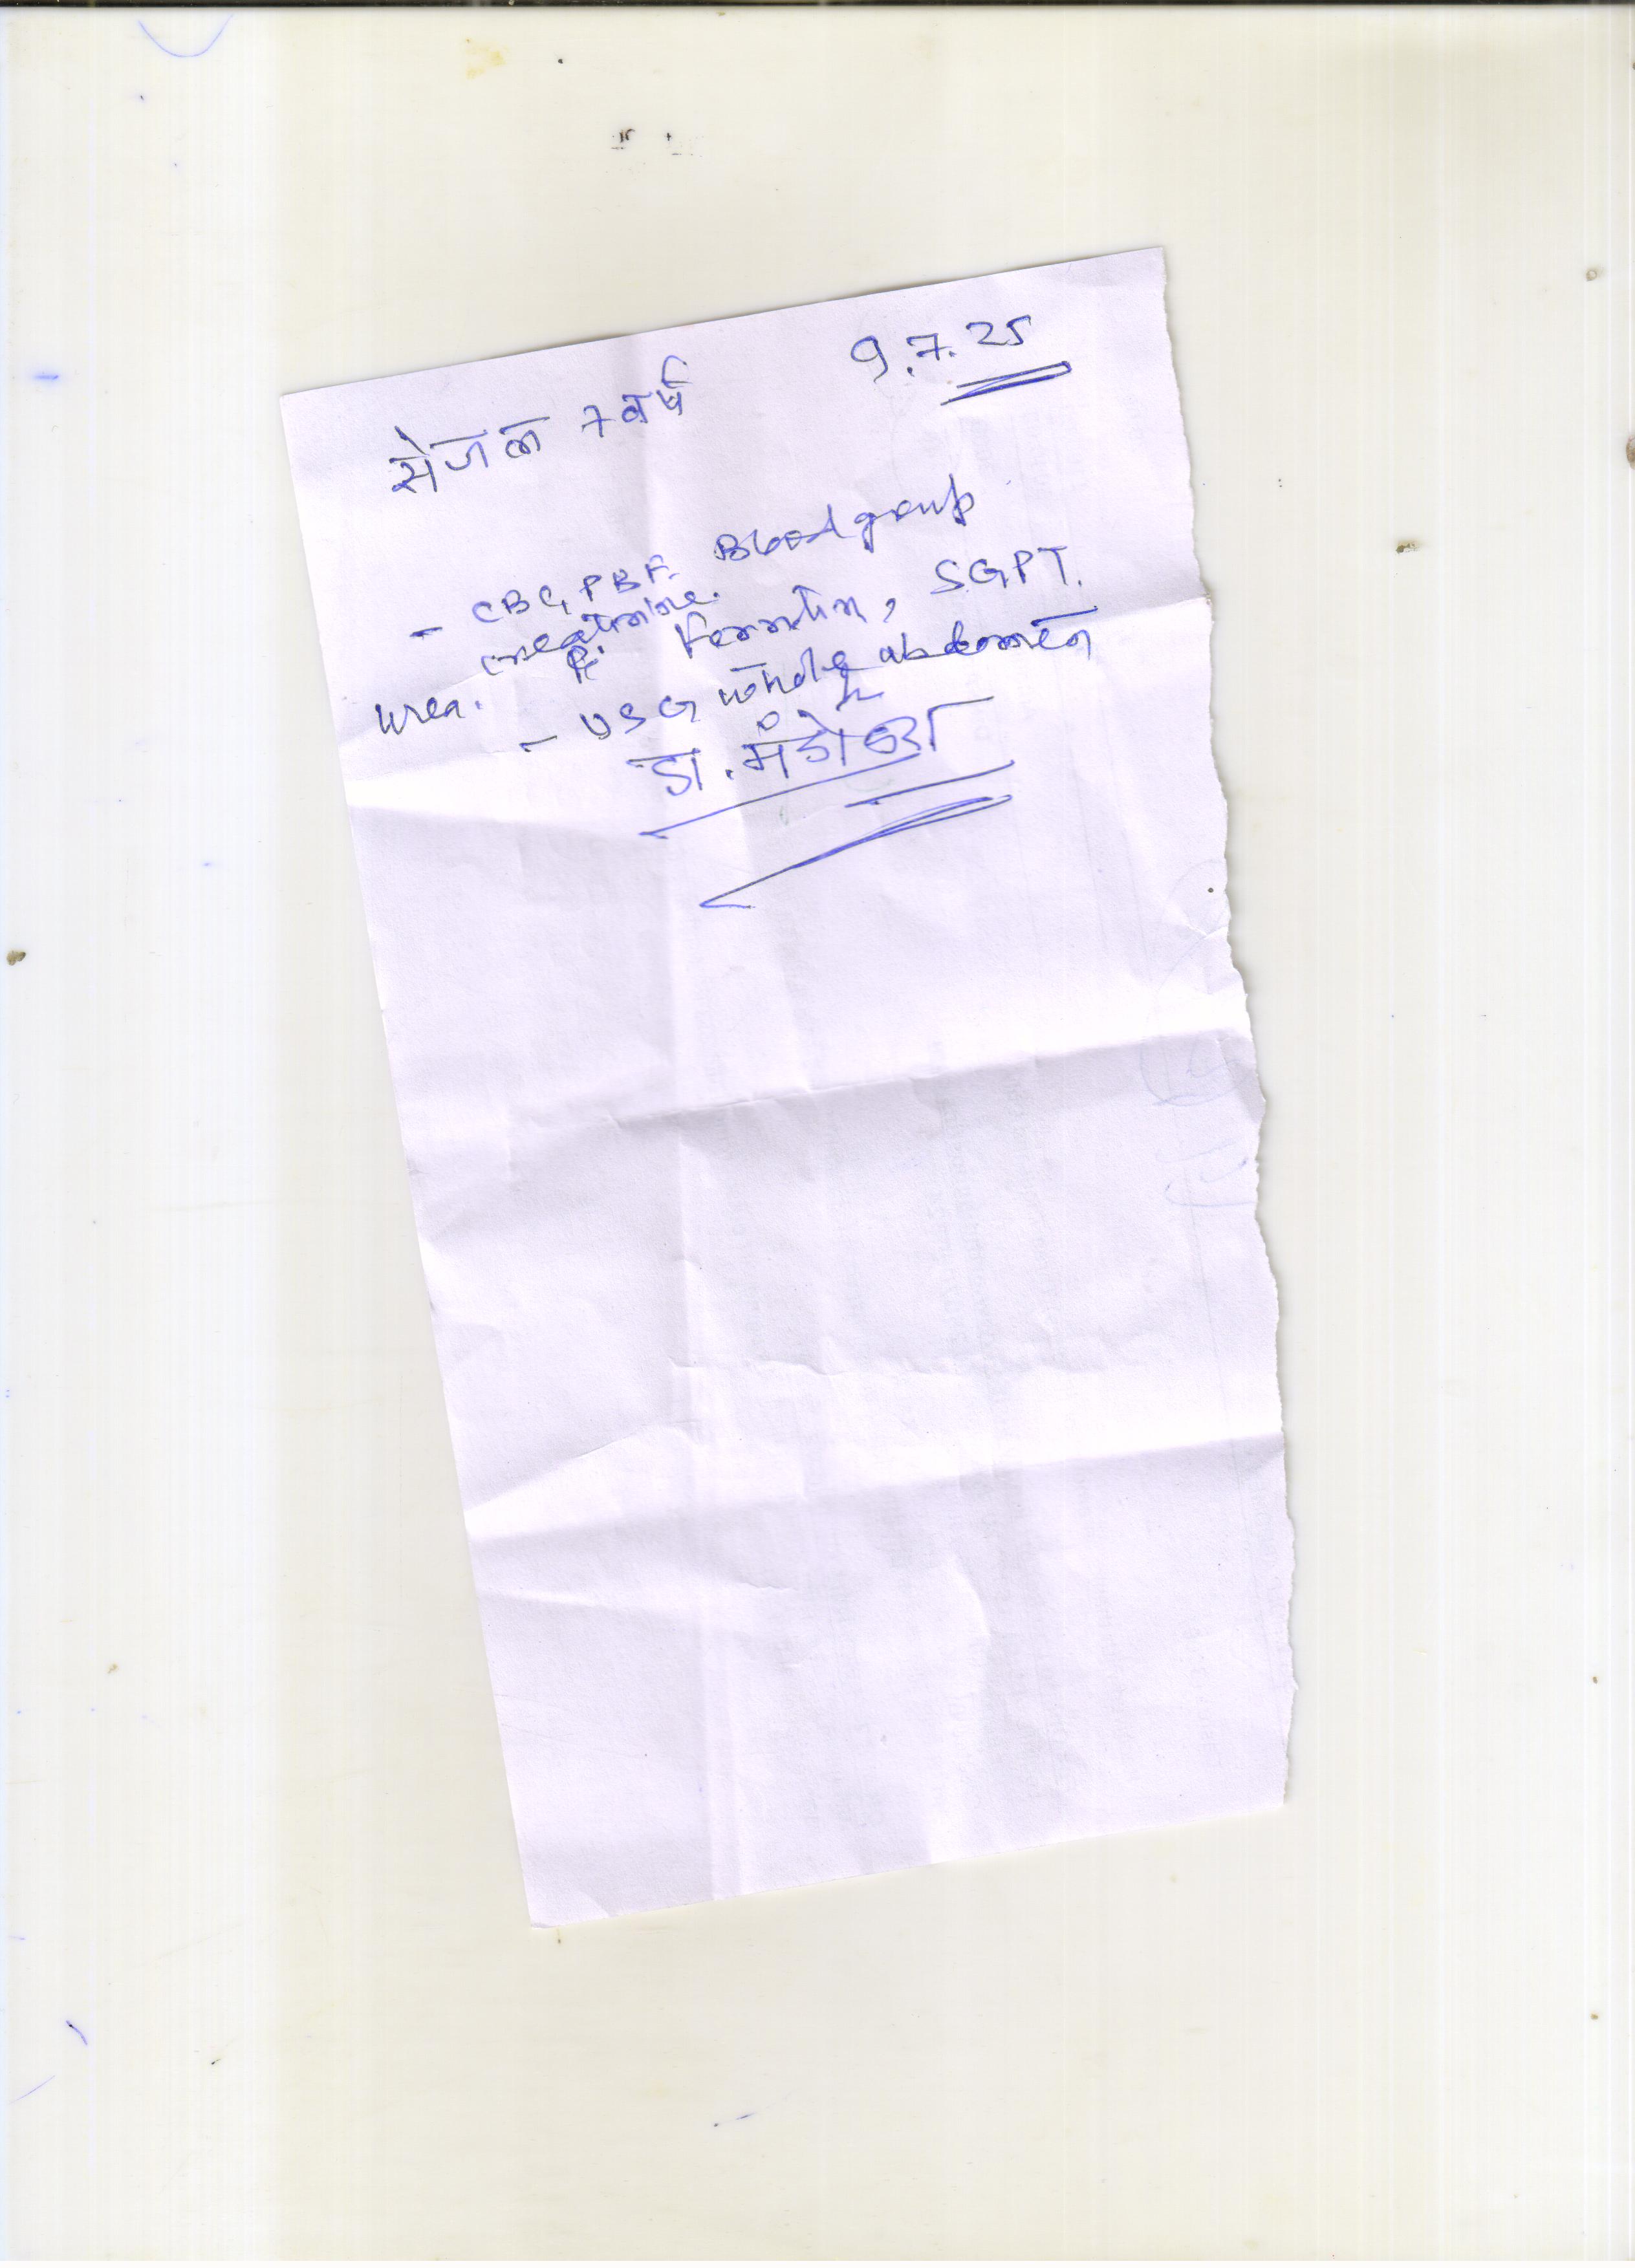 9.7.25
सेजल 7 वर्ष
- CBC, PBF. Blood group
urea. creatinine. Ferritin, SGPT.
- USG whole abdomen
डा. मंडोला